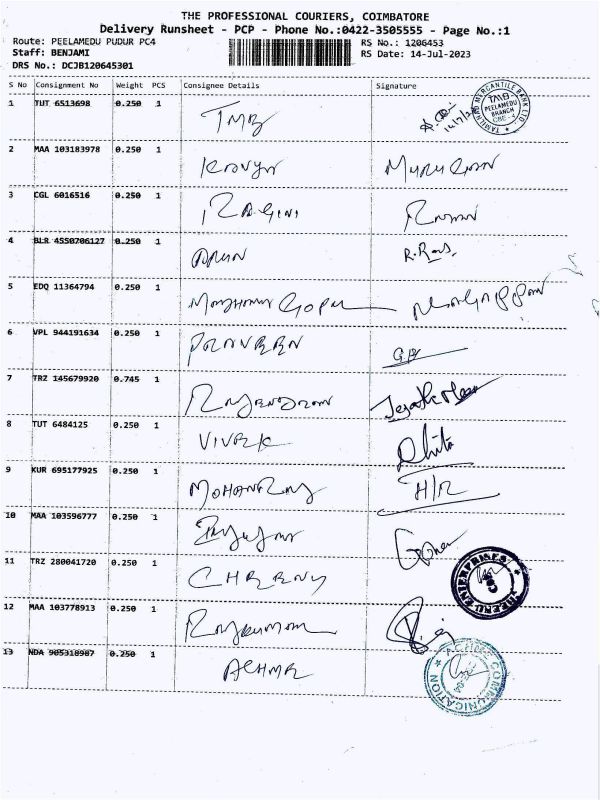 THE PROFESSIONAL COURIERS, COIMBATORE
Delivery Runsheet - PCP - Phone No.:0422-3505555 - Page No.:1
Route: PEELAMEDU PUDUR PC4 RS No.: 1206453
Staff: BENJAMI RS Date: 14-Jul-2023
DRS No.: DCJB120645301
S No Consignment No Weight PCS Consignee Details Signature
1 TUT 6513698 0.250 1 TMB 14/7/23 TAMILNAD MERCANTILE BANK LTD. TMB PEELAMEDU BRANCH CBE-4
2 MAA 103183978 0.250 1 Kavya Murugan
3 CGL 6016516 0.250 1 RAGINI Raman
4 BLR 4550706127 0.250 1 ARUN
5 EDQ 11364794 0.250 1 GOPAL
6 VPL 944191634 0.250 1 PRAVEEN
7 TRZ 145679920 0.745 1 RAJENDRAN
8 TUT 6484125 0.250 1 VIVEK
9 KUR 695177925 0.250 1 MOHANRAJ H/R
10 MAA 103596777 0.250 1
11 TRZ 280041720 0.250 1 ENTERPRISES CBE
12 MAA 103778913 0.250 1 RAJKUMAR
13 NDA 905318987 0.250 1 COMMUNICATION